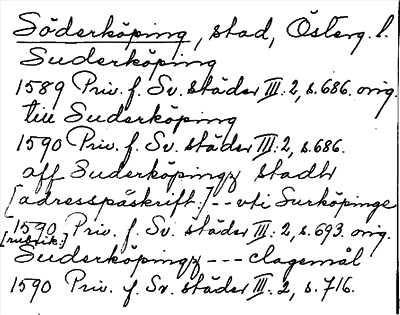 Söderköping, stad, Österg. l.
Suderköping
1589 Priv. f. Sv. städer III: 2, s. 686. orig.
till Suderköping
1590 Priv. f. Sv. städer III: 2, s. 686.
aff Suderköpingz stadh
[adresspåskrift:] -- vti Surköpinge
1590 Priv. f. Sv. städer III: 2, s. 693. orig.
[rubrik:]
Suderköpingz --- clagemål
1590 Priv. f. Sv. städer III. 2, s. 716.